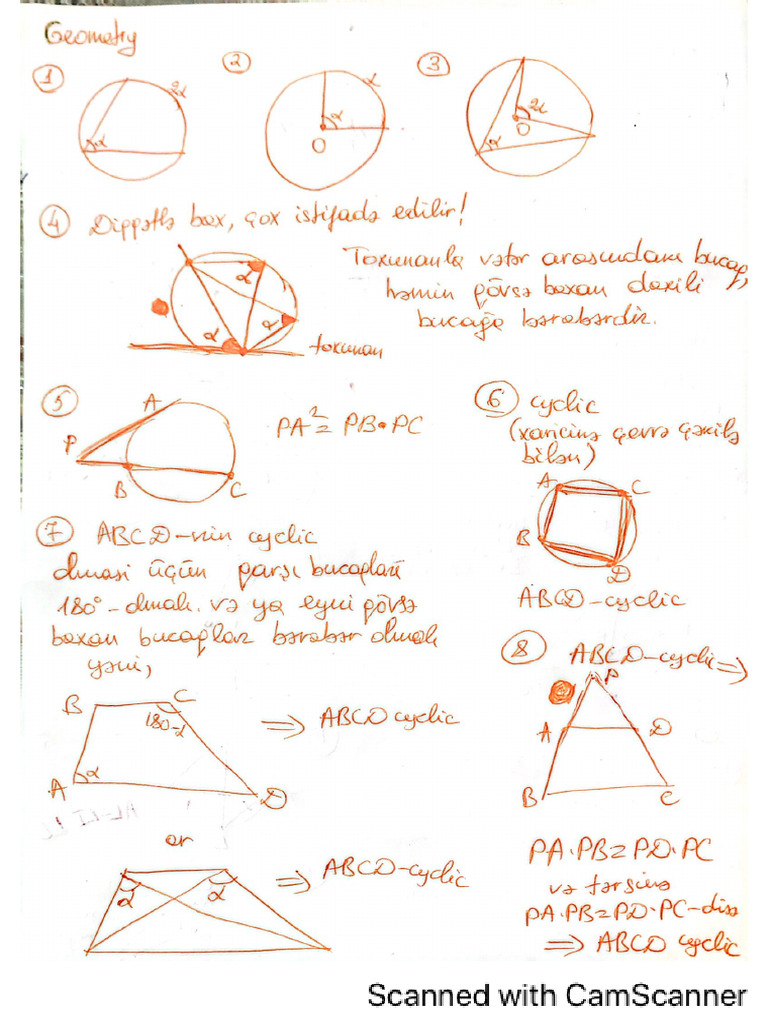 Geometry
1
α
2α
2
α
α
O
3
2α
O
α
4 Diqqətlə bax, çox istifadə edilir!
Toxunanla vətər arasındakı bucaq,
həmin qövsə baxan daxili
bucağa bərabərdir.
α
α
α
toxunan
5
A
P
B
C
PA² = PB•PC
6 cyclic
(xaricinə çevrə çəkilə
bilən)
A
C
B
D
ABCD-cyclic
7 ABCD-nin cyclic
olması üçün qarşı bucaqları
180°-olmalı. və ya eyni qövsə
baxan bucaqlar bərabər olmalı
yəni,
B
C
180-α
A
α
D
⇒ ABCD cyclic
or
α
α
⇒ ABCD-cyclic
8 ABCD-cyclic ⇒
P
A
D
B
C
PA·PB=PD·PC
və tərsinə
PA·PB=PD·PC-disə
⇒ ABCD cyclic
Scanned with CamScanner